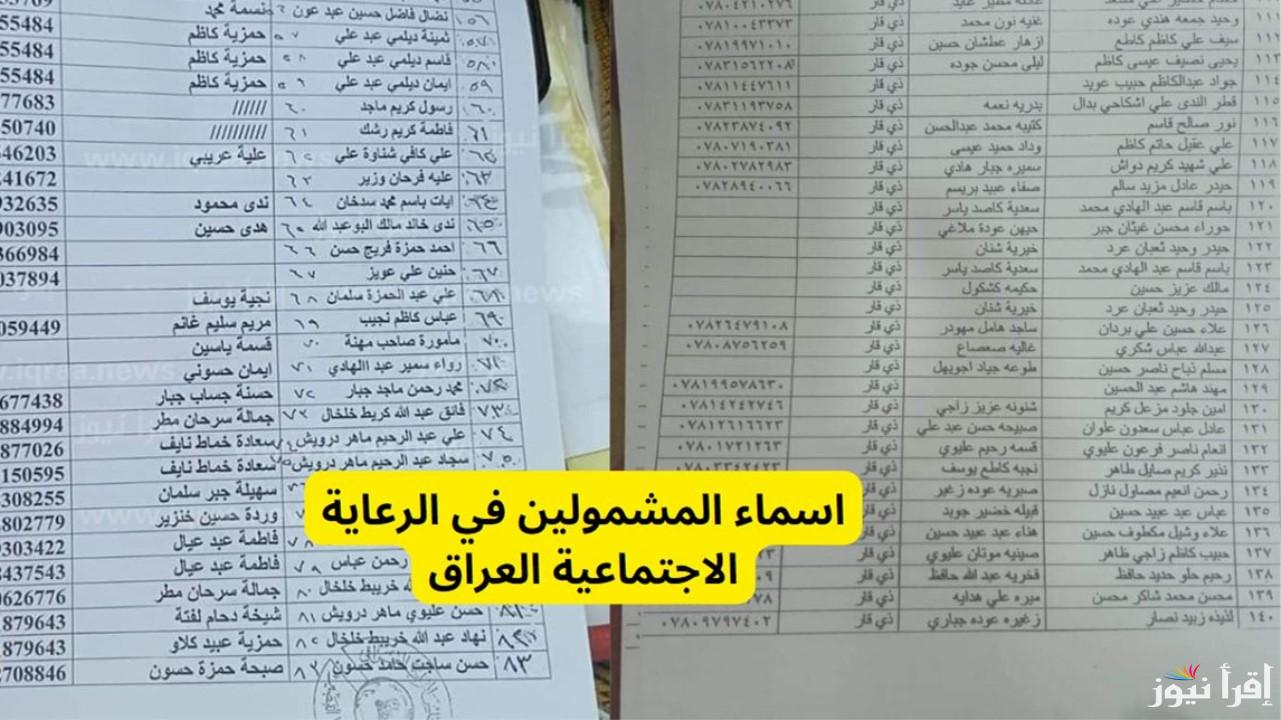 ١١١ وحيد جمعه هندي عوده غنيه نون محمد ذي قار ٠٧٨١٠٠٤٣٣٧٣
١١٢ سيف علي كاظم كاطع ازهار عطشان حسين ذي قار ٠٧٨١٩٩٧١٠١٠
١١٣ يحيى نصيف عيسى كاظم ليلى محسن جوده ذي قار ٠٧٨٣١٥٦٢٢٠٨
١١٤ جواد عبدالكاظم حبيب عويد ذي قار ٠٧٨١١٤٤٧٦١١
١١٥ قطر الندى علي اشكاحي بدال بدريه نعمه ذي قار ٠٧٨٣١١٩٣٧٥٨
١١٦ نور صالح قاسم كتيبه محمد عبدالحسن ذي قار ٠٧٨٢٣٨٧٤٠٩٢
١١٧ علي عقيل حاتم كاظم وداد حميد عيسى ذي قار ٠٧٨٠٧١٩٠٣٨١
١١٨ علي شهيد كريم دواش سميره جبار هادي ذي قار ٠٧٨٠٢٧٨٢٩٨٣
١١٩ حيدر عادل مزيد سالم صفاء عبيد بريسم ذي قار ٠٧٨٢٨٩٤٠٠٦٦
١٢٠ باسم قاسم عبد الهادي محمد سعدية كاصد ياسر ذي قار
١٢١ حوراء محسن غيثان جبر جيهن عودة ملاغي ذي قار
١٢٢ حيدر وحيد ثعبان عرد خيرية شنان ذي قار
١٢٣ باسم قاسم عبد الهادي محمد سعدية كاصد ياسر ذي قار
١٢٤ مالك عزيز حسين حكيمه كشكول ذي قار
١٢٥ حيدر وحيد ثعبان عرد خيرية شنان ذي قار
١٢٦ علاء حسين علي بردان ساجد هامل مهودر ذي قار ٠٧٨٢٦٤٧٩١٠٨
١٢٧ عبدالله عباس شكري غاليه صعصاع ذي قار ٠٧٨٠٨٧٥٦٢٥٩
١٢٨ مسلم نباح ناصر حسين طوعه جياد اجويهل ذي قار
١٢٩ مهند هاشم عبد الحسين ذي قار ٠٧٨١٩٩٥٧٨٦٣٠
١٣٠ امين جلود مزعل كريم شنونه عزيز زاجي ذي قار ٠٧٨١٤٢٤٢٧٤٦
١٣١ عادل عباس سعدون علوان صبيحه حسن عبد علي ذي قار ٠٧٨١٢٦١٦٦٢٣
١٣٢ انعام ناصر فرعون عليوي قسمه رحيم عليوي ذي قار ٠٧٨٠١٧٣١٢٦٣
١٣٣ نذير كريم صايل طاهر نجيه كاطع يوسف ذي قار ٠٧٨٠٣٣٤٢٤٢٣
١٣٤ رحمن انعيم مصاول نازل صبريه عوده زغير ذي قار
١٣٥ عباس عبد عبيد حسين قبيله خضير جويد ذي قار
١٣٦ علاء وشيل مكطوف حسين هناء عبد عبيد حسين ذي قار
١٣٧ حبيب كاظم زاجي ظاهر صينيه موتان عليوي ذي قار
١٣٨ رحيم حلو حديد حافظ فخريه عبد الله حافظ ذي قار
١٣٩ محسن محمد شاكر محسن ميره علي هدايه ذي قار
١٤٠ لذيذه زبيد نصار زغيره عوده جباري ذي قار ٠٧٨٠٩٧٩٧٤٠٢
٥٦ نضال فاضل حسين عبد عون نسمة محمد
٥٧ ثمينة ديلمي عبد علي حمزية كاظم 55484
٥٨ قاسم ديلمي عبد علي حمزية كاظم 55484
٥٩ ايمان ديلمي عبد علي حمزية كاظم 55484
٦٠ رسول كريم ماجد ٦٠ ////// 77683
٦١ فاطمة كريم رشك ٦١ ////////// 50740
٦٢ علي كافي شناوة علي ٦٢ علية عريبي 646203
٦٣ عليه فرحان وزير ٦٣ 241672
٦٤ ايات باسم محمد سدخان ٦٤ ندى محمود 932635
٦٥ ندى خالد مالك البوعبد الله ٦٥ هدى حسين 903095
٦٦ احمد حمزة فريح حسن ٦٦ 366984
٦٧ حنين علي عويز ٦٧ 037894
٦٨ علي عبد الحمزة سلمان ٦٨ نجية يوسف
٦٩ عباس كاظم نجيب ٦٩ مريم سليم غانم 059449
٧٠ مأمورة صاحب مهنة ٧٠ قسمة ياسين
٧١ رواء سمير عبد الهادي ٧١ ايمان حسوني
٧٢ محمد رحمن ماجد جبار ٧٢ حسنة جساب جبار 677438
٧٣ فانق عبد الله كريط خلخال ٧٣ جمالة سرحان مطر 884994
٧٤ علي عبد الرحيم ماهر درويش ٧٤ سعادة خماط نايف 877026
٧٥ سجاد عبد الرحيم ماهر درويش ٧٥ سعادة خماط نايف 150595
سهيلة جبر سلمان 308255
وردة حسين خنزير 802779
٧٨ فاطمة عبد عيال 303422
رحمن عباس ٧٩ فاطمة عبد عيال 437543
خريبط خلخال ٨٠ جمالة سرحان مطر 626776
٨١ حسن عليوي ماهر درويش ٨١ شيخة دحام لفتة 879643
٨٢ نهاد عبد الله خريبط خلخال ٨٢ حمزية عبيد كلاو 879643
٨٣ حسن ساجت حامد حسون ٨٣ صبحة حمزة حسون 708846
اسماء المشمولين في الرعاية
الاجتماعية العراق
إقرأ نيوز